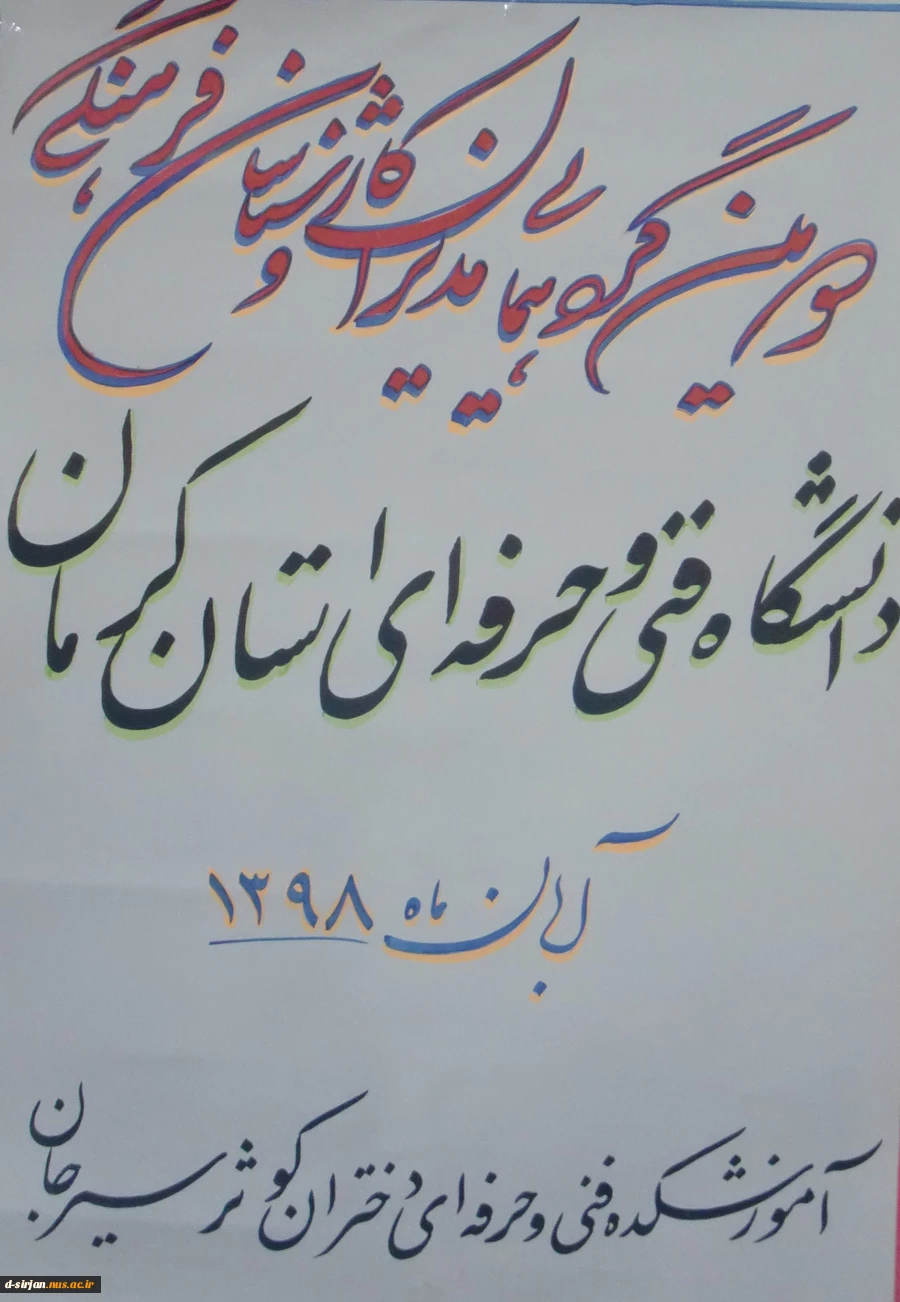 دومین گردهمایی مدیران و کارشناسان فرهنگی
دانشگاه فنی و حرفه ای استان کرمان
آبان ماه ۱۳۹۸
آموزشکده فنی و حرفه ای دختران کوثر سیرجان
d-sirjan.nus.ac.ir